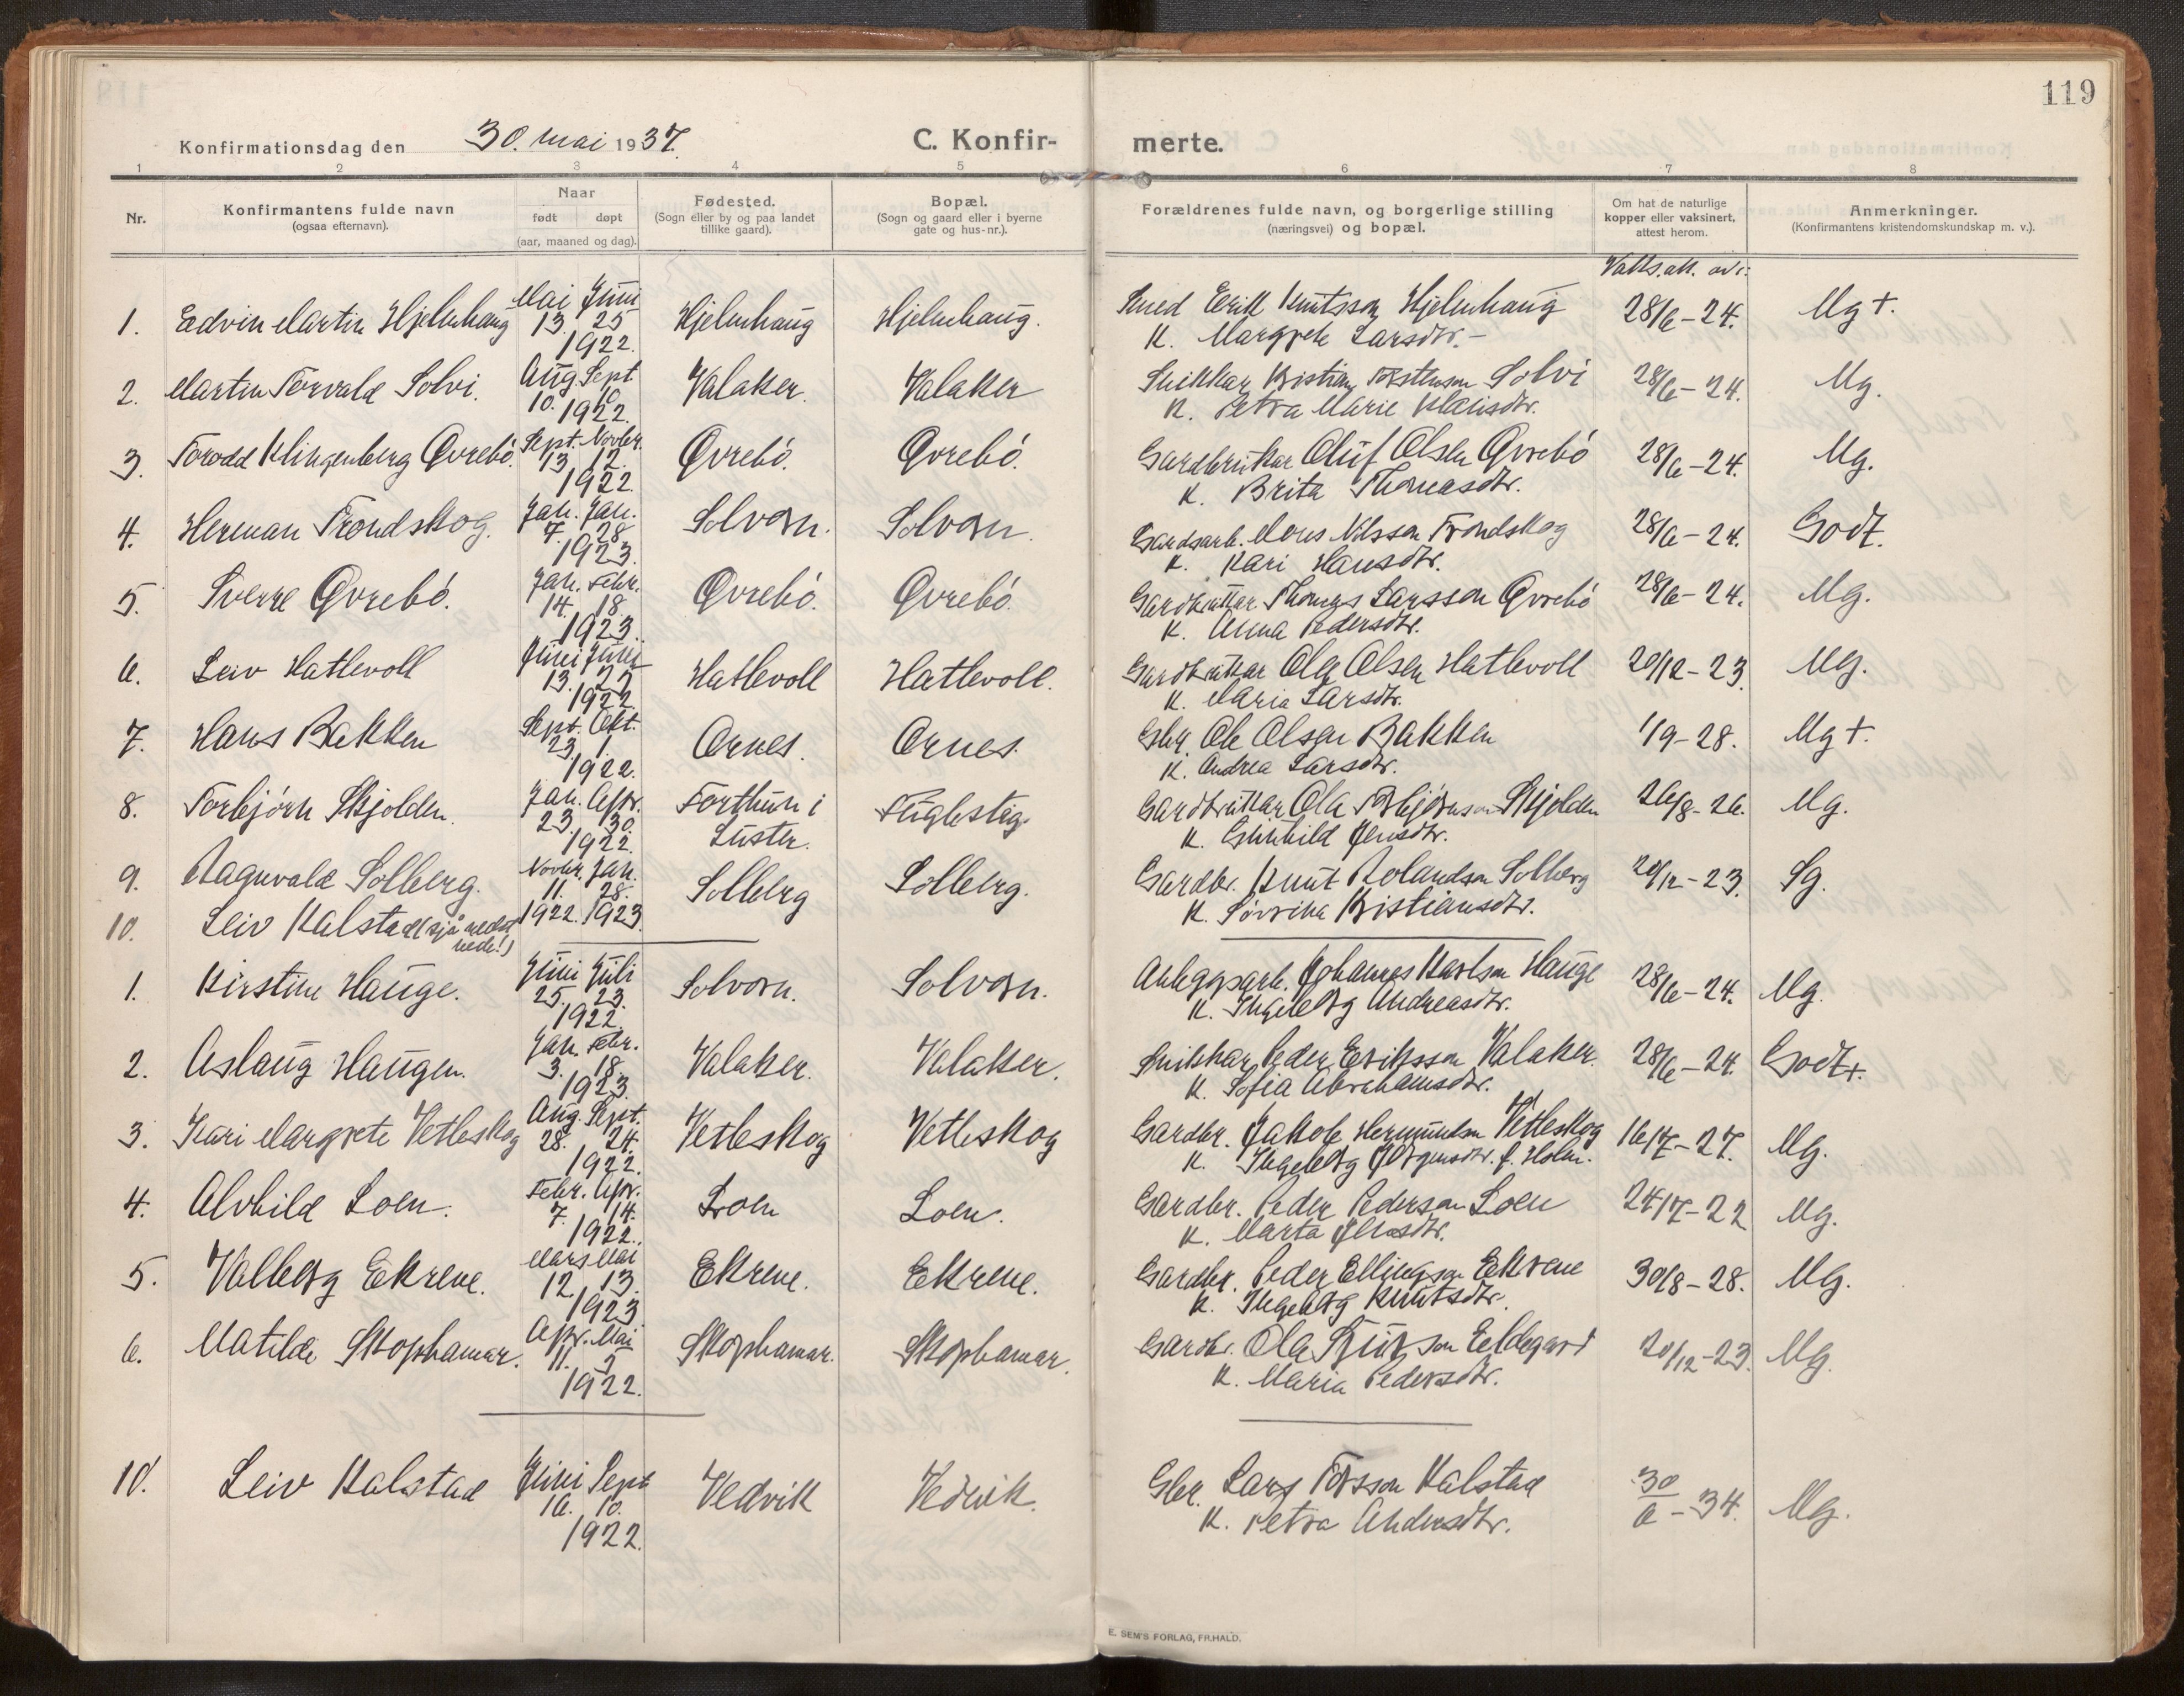 119
Konfirmationsdag den 30. mai 1937.
C. Konfir- merte.
1 2 3 4 5 6 7 8
Nr.
Konfirmantens fulde navn
(ogsaa efternavn).
Naar
født døpt
(aar, maaned og dag).
Fødested.
(Sogn eller by og paa landet
tillike gaard).
Bopæl.
(Sogn og gaard eller i byerne
gate og hus-nr.).
Forældrenes fulde navn, og borgerlige stilling
(næringsvei) og bopæl.
Om hat de naturlige
kopper eller vaksinert,
attest herom.
Anmerkninger.
(Konfirmantens kristendomskundskap m. v.).
Vaks. att. av:
Mai Juni
1. Edvin Martin Hjelmhaug 13. 25 Hjelmhaug Hjelmhaug. Smed Erik Knutsson Hjelmhaug 28/6-24. Mg+.
1922. K. Margrete Larsdtr. -
Aug. Sept
2. Martin Torvald Solvi. 10. 10 Valaker. Valaker Snikkar Kristian Torstenson Solvi 28/6-24. Mg.
1922. K. Petra Marie Klausdtr.
Sept. Novbr.
3. Torodd Klingenberg Øvrebö. 13 12. Øvrebö. Øvrebö. Gardbrukar Oluf Olsen Øvrebö 28/6-24. Mg.
1922 K. Brita Thomasdtr.
Jan. Jan.
4. Herman Trondskog. 7. 28. Solvorn. Solvorn. Gardsarb. Mons Nilsson Trondskog 28/6-24. Godt.
1923. K. Kari Hansdtr.
Jan. Febr.
5. Sverre Øvrebö. 14. 18 Øvrebö. Øvrebö. Gardbrukar Thomas Larsson Øvrebö 28/6-24. Mg.
1923. K. Anna Pedersdtr.
Juni Juni
6. Leiv Hatlevoll 13. 25 Hatlevoll Hatlevoll. Gardbrukar Ola Olsen Hatlevoll 20/12-23. Mg.
1922. K. Maria Larsdtr.
Sept. Okt.
7. Hans Bakken 23. 1. Ornes. Ornes. Gbr. Ole Olsen Bakken 1/9-28. Mg+.
1922. K. Andrea Larsdtr.
Jan. Apr.
8. Torbjörn Skjolden. 23. 30. Forthun i Fuglesteg. Gardbrukar Ola Torbjörnson Skjolden 26/8-26. Mg.
1922. Luster. K. Gunhild Jensdtr.
Novbr. Jan.
9. Ragnvald Solberg. 11. 28. Solberg Solberg. Gardbr. Knut Rolandson Solberg 20/12-23. Sg.
1922. 1923. K. Sörine Kristiansdtr.
10. Leiv Kalstad (sjå nedst
nede!)
Juni Juli
1. Kirstine Hauge. 25. 23. Solvorn. Solvorn. Anleggsarb. Johannes Karlson Hauge 28/6-24. Mg.
1922. K. Ingeborg Andreasdtr.
Jan. Febr.
2. Aslaug Haugen. 3. 18. Valaker. Valaker. Snikkar Peder Eriksson Valaker. 28/6-24. Godt+.
1923. K. Sofia Abrahamsdtr.
Aug. Sept.
3. Kari Margrete Vetleskog 28. 24. Vetleskog Vetleskog Gardbr. Jakob Hermundson Vetleskog 16/7-27. Mg.
1922. K. Ingeborg Jörgensdtr. f. Holm.
Febr. Apr.
4. Alvhild Loen. 7. 14. Loen Loen. Gardbr. Peder Pederson Loen 24/7-22 Mg.
1922. K. Marta Jensdtr.
Mars Mai
5. Valborg Ekrene. 12. 13. Ekrene. Ekrene. Gardbr. Peder Ellingson Ekrene 30/8-28. Mg.
1923 K. Ingeborg Knutsdtr.
Apr. Mai
6. Matilde Skophamar. 11. 5 Skophamar. Skophamar. Gardbr. Ola Sjurson Eeldegard 20/12-23. Mg.
1922. K. Maria Pedersdtr.
Juni Sept
10. Leiv Kalstad 16. 10. Vedvik Vedvik. Gbr. Lars Torsson Kalstad 30/6-34. Mg.
1922. K. Petra Andersdtr.
E. SEM'S FORLAG, FR.HALD.